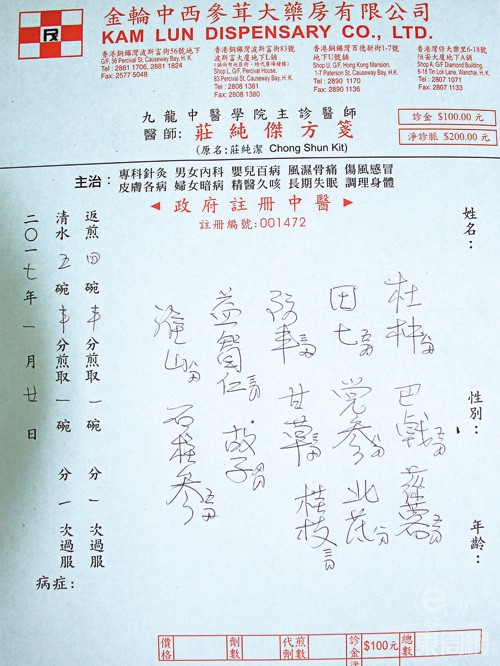 金輪中西參茸大藥房有限公司
KAM LUN DISPENSARY CO., LTD.
香港銅鑼灣波斯富街56號地下
G/F, 56 Percival St, Causeway Bay, H.K.
Tel : 2881 1706, 2881 1824
Fax: 2577 5048
香港銅鑼灣波斯富街83號
波斯富大廈地下L舖
Shop L, G/F, Percival House,
83 Percival St, Causeway Bay, H.K.
Tel : 2808 1381
Fax: 2808 1380
香港銅鑼灣百德新街1-7號
地下U號舖
Shop U, G/F, Hong Kong Mansion,
1-7 Paterson St, Causeway Bay, H.K.
Tel : 2890 1170
Fax: 2890 1136
香港灣仔天樂里6-18號
恒安大廈地下D舖
Shop A, G/F Diamond Building,
6-18 Tin Lok Lane, Wanchai, H.K.
Tel : 2807 1071
Fax: 2807 1133
九龍中醫學院主診醫師
醫師: 莊純傑方箋
(原名:莊純潔 Chong Shun Kit)
診金 $100.00元
淨診脈 $200.00元
主治:
專科針灸 男女內科 嬰兒百病 風濕骨痛 傷風感冒
皮膚各病 婦女暗病 精醫久咳 長期失眠 調理身體
政府註冊中醫
註冊編號:001472
姓名:
性別:
年齡:
杜仲 巴戟
田七 党参 北芪
甘草 桂枝
益智仁
淮山
返煎四碗半分煎取一碗 分一次過服
清水五碗半分煎取一碗 分一次過服
二〇一七年一月廿日
病症:
價格
劑數
代煎劑數
診金
$100元
總數